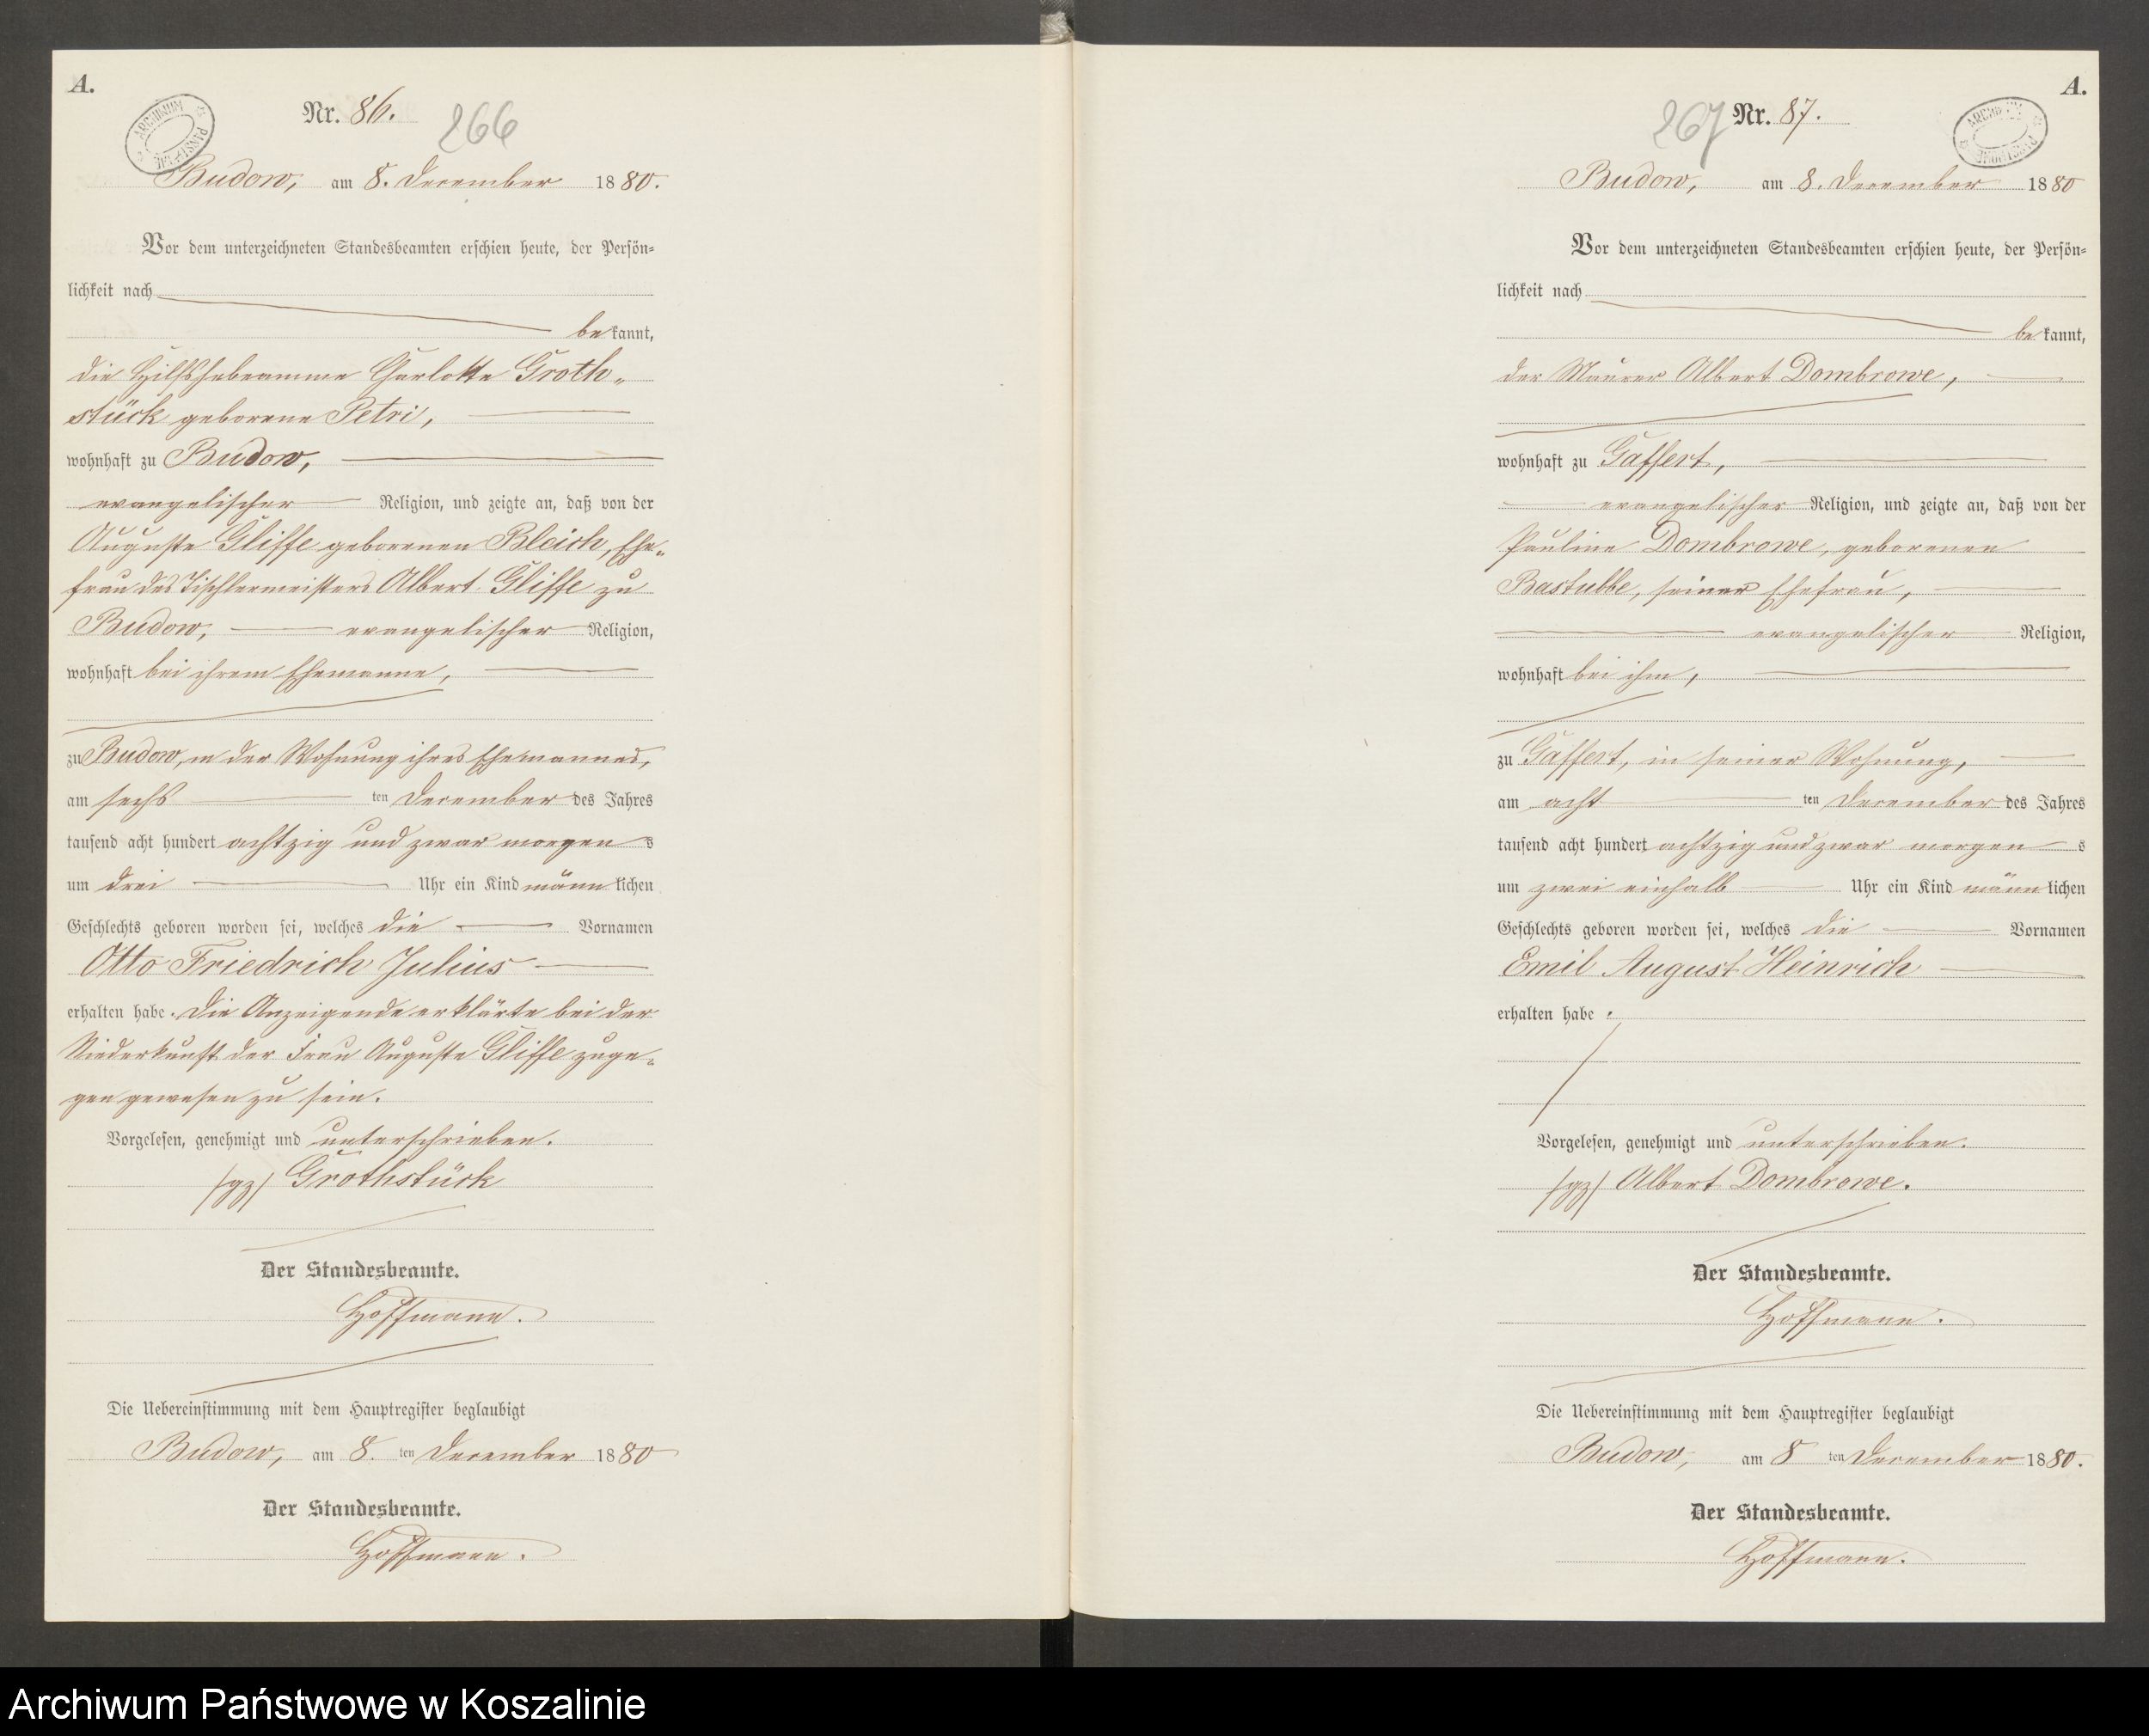 A.
ARCHIWUM PAŃSTWOWE
Nr. 86.
266
Budow, am 8. December 1880.
Vor dem unterzeichneten Standesbeamten erschien heute, der Persön=
lichkeit nach
bekannt,
die Hilfshebeamme Charlotte Groth-
stück geborene Petri,
wohnhaft zu Budow,
evangelischer Religion, und zeigte an, daß von der
Auguste Gliffe geborenen Bleich, Ehe-
frau des Tischlermeisters Albert Gliffe zu
Budow, evangelischer Religion,
wohnhaft bei ihrem Ehemanne,
zu Budow, in der Wohnung ihres Ehemannes,
am sechsten December des Jahres
tausend acht hundert achtzig und zwar morgens
um drei Uhr ein Kind männlichen
Geschlechts geboren worden sei, welches die Vornamen
Otto Friedrich Julius
erhalten habe. Die Anzeigende erklärte bei der
Niederkunft der Frau Auguste Gliffe zuge-
gen gewesen zu sein.
Vorgelesen, genehmigt und unterschrieben.
/gz/ Grothstück
Der Standesbeamte.
Hoffmann.
Die Uebereinstimmung mit dem Hauptregister beglaubigt
Budow, am 8. ten December 1880
Der Standesbeamte.
Hoffmann.
A.
ARCHIWUM PAŃSTWOWE
267
Nr. 87.
Budow, am 8. December 1880
Vor dem unterzeichneten Standesbeamten erschien heute, der Persön=
lichkeit nach
bekannt,
der Maurer Albert Dombrowe,
wohnhaft zu Gaffert,
evangelischer Religion, und zeigte an, daß von der
Pauline Dombrowe, geborenen
Bastubbe, seiner Ehefrau,
evangelischer Religion,
wohnhaft bei ihm,
zu Gaffert, in seiner Wohnung,
am achtten December des Jahres
tausend acht hundert achtzig und zwar morgens
um zwei einhalb Uhr ein Kind männlichen
Geschlechts geboren worden sei, welches die Vornamen
Emil August Heinrich
erhalten habe.
Vorgelesen, genehmigt und unterschrieben.
/gz/ Albert Dombrowe.
Der Standesbeamte.
Hoffmann.
Die Uebereinstimmung mit dem Hauptregister beglaubigt
Budow, am 8 ten December 1880.
Der Standesbeamte.
Hoffmann.
Archiwum Państwowe w Koszalinie